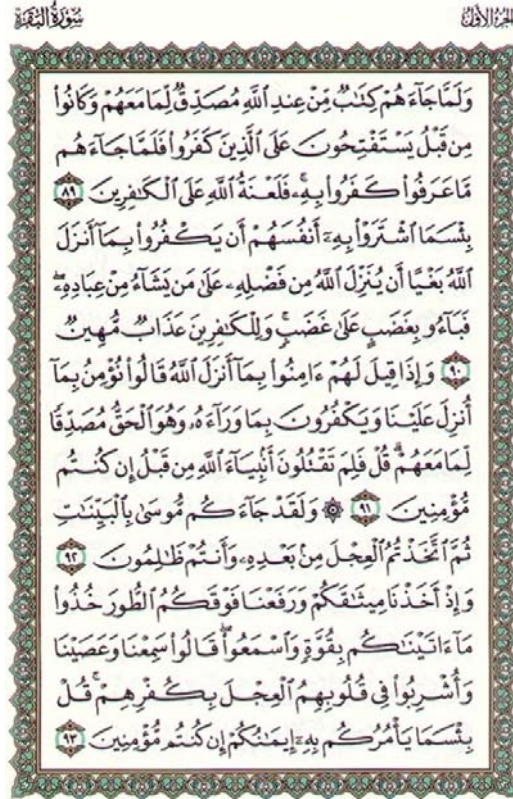 الجزء الأول
سورة البقرة
وَلَمَّا جَآءَهُمْ كِتَٰبٌ مِّنْ عِندِ ٱللَّهِ مُصَدِّقٌ لِّمَا مَعَهُمْ وَكَانُوا۟
مِن قَبْلُ يَسْتَفْتِحُونَ عَلَى ٱلَّذِينَ كَفَرُوا۟ فَلَمَّا جَآءَهُم
مَّا عَرَفُوا۟ كَفَرُوا۟ بِهِۦ ۚ فَلَعْنَةُ ٱللَّهِ عَلَى ٱلْكَٰفِرِينَ ٨٩
بِئْسَمَا ٱشْتَرَوْا۟ بِهِۦٓ أَنفُسَهُمْ أَن يَكْفُرُوا۟ بِمَآ أَنزَلَ
ٱللَّهُ بَغْيًا أَن يُنَزِّلَ ٱللَّهُ مِن فَضْلِهِۦ عَلَىٰ مَن يَشَآءُ مِنْ عِبَادِهِۦ ۖ
فَبَآءُو بِغَضَبٍ عَلَىٰ غَضَبٍ ۚ وَلِلْكَٰفِرِينَ عَذَابٌ مُّهِينٌ
٩٠ وَإِذَا قِيلَ لَهُمْ ءَامِنُوا۟ بِمَآ أَنزَلَ ٱللَّهُ قَالُوا۟ نُؤْمِنُ بِمَآ
أُنزِلَ عَلَيْنَا وَيَكْفُرُونَ بِمَا وَرَآءَهُۥ وَهُوَ ٱلْحَقُّ مُصَدِّقًا
لِّمَا مَعَهُمْ ۗ قُلْ فَلِمَ تَقْتُلُونَ أَنۢبِيَآءَ ٱللَّهِ مِن قَبْلُ إِن كُنتُم
مُّؤْمِنِينَ ٩١ ۞ وَلَقَدْ جَآءَكُم مُّوسَىٰ بِٱلْبَيِّنَٰتِ
ثُمَّ ٱتَّخَذْتُمُ ٱلْعِجْلَ مِنۢ بَعْدِهِۦ وَأَنتُمْ ظَٰلِمُونَ ٩٢
وَإِذْ أَخَذْنَا مِيثَٰقَكُمْ وَرَفَعْنَا فَوْقَكُمُ ٱلطُّورَ خُذُوا۟
مَآ ءَاتَيْنَٰكُم بِقُوَّةٍ وَٱسْمَعُوا۟ ۖ قَالُوا۟ سَمِعْنَا وَعَصَيْنَا
وَأُشْرِبُوا۟ فِى قُلُوبِهِمُ ٱلْعِجْلَ بِكُفْرِهِمْ ۚ قُلْ
بِئْسَمَا يَأْمُرُكُم بِهِۦٓ إِيمَٰنُكُمْ إِن كُنتُم مُّؤْمِنِينَ ٩٣